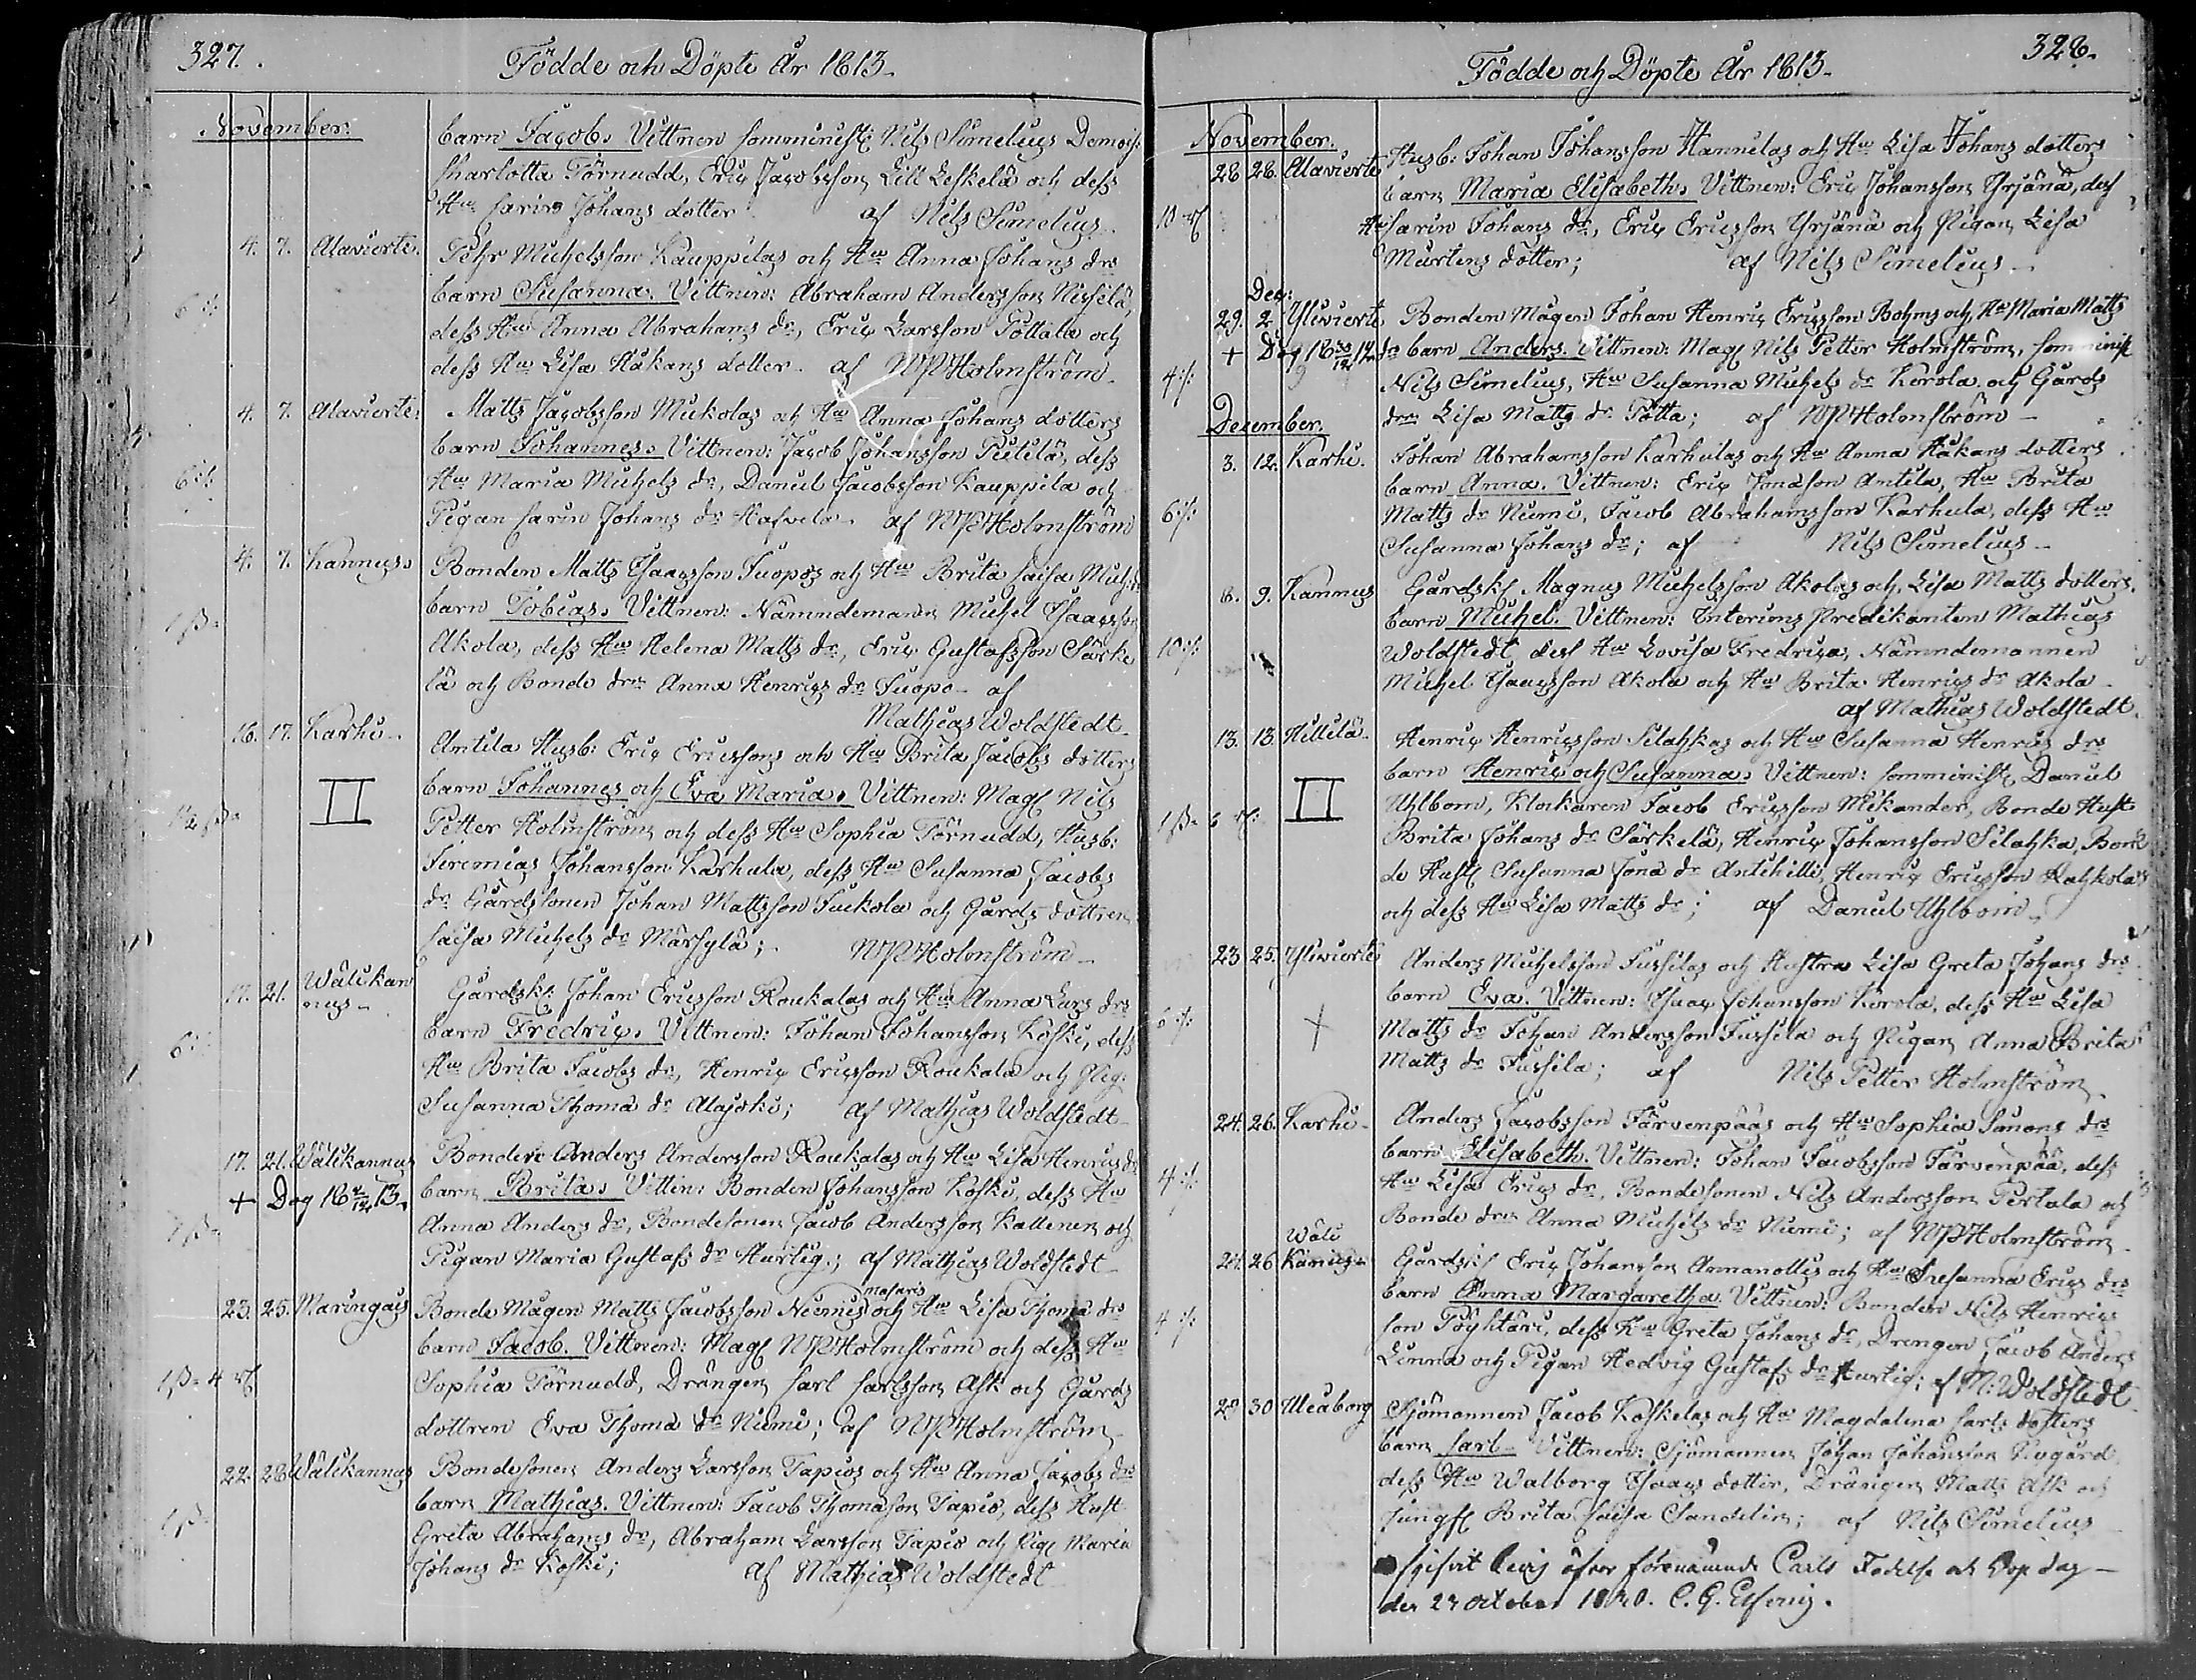 327.
Födde och Döpte År 1813.
November.
barn Jacob. Vittnen Comminist: Nils Simelius Demois:
Charlotta Törnudd, Eric Jacobsson Lill Leskelä och dess
Hu Carin Johans dotter af Nils Simelius.
4. 7. Alavierte. Pehr Michelsson Kauppilas och Hu Anna Johans drs
6 :/: barn Susanna. Vittnen: Abraham Andersson Nissilä,
dess Hu Anna Abrahams dr, Eric Larsson Tottala och
dess Hu Lisa Håkans dotter. af NPHolmström.
4. 7. Alavierte. Matts Jacobsson Mickolas och Hu Anna Johans dotters
barn Johannes. Vittnen: Jacob Johansson Pietilä, dess
6 :/: Hu Maria Michels dr, Daniel Jacobsson Kauppila och
Pigan Carin Johans dr Hafvela. af NPHolmström
4. 7. Kannus. Bonden Matts Isaacsson Tuopos och Hu Brita Caisa Mich: drs
1 β barn Tobias. Vittnen: Nämndemannen Michel Isaacsson
Akola, dess Hu Helena Matts dr, Eric Gustafsson Särke
lä och Bonde drn Anna Henrics dr Tuopo. af
Mathias Woldstedt.
16. 17. Karhi. Antila Husb: Eric Ericssons och Hu Brita Jacobs dotters
II barn Johannes och Eva Maria. Vittnen: Mag Nils
Petter Holmström och dess Hu Sophia Törnudd, Husb:
Jeremias Johansson Karhula, dess Hu Susanna Jacobs
dr Gårdssonen Johan Mattsson Juckola och Gårds dottren
Caisa Michels dr Märsylä; NPHolmström
17. 21. Wälikan
nus. Gårdsk: Johan Ericsson Roukalas och Hu Anna Lars drs
6 :/: barn Fredric. Vittnen: Johan Johansson Koski, dess
Hu Brita Jacobs dr, Henric Ericsson Roukala och Pig:
Susanna Thoma dr Alajoki; af Mathias Woldstedt
17. 21. Wälikannus Bonden Anders Andersson Roukalas och Hu Lisa Henrics drs
+ Dog 18 /12 13. barn Brita. Vittn: Bonden Johansson Koski, dess Hu
1 β Anna Anders dr, Bondesonen Jacob Andersson Kattenen och
Pigan Maria Gustafs dr Hurtig; af Mathias Woldstedt
23. 25. Maringais Bonde Mågen Matts Jacobsson Niemis och Hu Lisa Thoma drs
barn Jacob. Vittnen: Mag NPHolmström och dess Hu
1 β 4 Sophia Törnudd, Drängen Carl Carlsson Ask och Gårds
dottren Eva Thoma dr Niemi; af NPHolmström
22. 28 Wälikannus Bondesonen Anders Larsson Tapios och Hu Anna Jacobs drs
barn Mathias. Vittnen: Jacob Thomasson Tapio, dess Hust
1 β Greta Abrahams dr, Abraham Larsson Tapio och Pig: Maria
Johans dr Koski; af Mathias Woldstedt
328.
Födde och Döpte År 1813.
November.
28 28. Alavierte Husb: Johan Johansson Hannilas och Hu Lisa Johans dotters
barn Maria Elisabeth. Vittnen: Eric Johansson Yrjänä, dess
10 Hu Carin Johans dr, Eric Ericsson Yrjänä och Pigan Lisa
Mårtens dotter; af Nils Simelius
Dec:
29. 2 Ylivierte Bonden Mågen Johan Henric Ericsson Bohms och Hu Maria Matts
+ Dog 18 30/12 14 drs barn Anders. Vittnen: Mag Nils Petter Holmström, Comminist
4 :/: Nils Simelius, Hu Susanna Michels dr Korola och Gårds
drn Lisa Matts dr Totta; af NPHolmström
December.
3. 12. Karhi. Johan Abrahamsson Karhulas och Hu Anna Håkans dotters
barn Anna. Vittnen: Eric Jonasson Antila, Hu Brita
6 :/: Matts dr Niemi, Jacob Abrahamsson Karhula, dess Hu
Susanna Johans dr; af Nils Simelius
8. 9. Kannus Gårdsk Magnus Michelsson Akolas och Lisa Matts dotters.
barn Michel. Vittnen: Interims Predikanten Mathias
10 :/: Woldstedt, dess Hu Lovisa Fredrica, Nämndemannen
Michel Isaacsson Akola och Hu Brita Henrics dr Akola
af Mathias Woldstedt.
13. 13. Hillilä Henric Henricsson Silahkas och Hu Susanna Henrics drs
II barn Henric och Susanna. Vittnen: Comminist: Daniel
1 β 6 Uhlbom, Klockaren Jacob Ericsson Mikander, Bonde Hust
Brita Johans dr Särkelä, Henric Johansson Silahka, Bon
de Hust Susanna Jona dr Antihilli, Henric Ericsson Rahkola
och dess Hu Lisa Matts dr; af Daniel Uhlbom
23 25. Ylivierte Anders Michelsson Jussilas och Hustru Lisa Greta Johans drs
6 :/: + barn Eva. Vittnen: Isaac Johansson Korola, dess Hu Lisa
Matts dr Johan Andersson Jussila och Pigan Anna Brita
Matts dr Jussila; af Nils Petter Holmström
24. 26. Karhi. Anders Jacobsson Järvenpääs och Hu Sophia Simons drs
4 :/: barn Elisabeth. Vittnen: Johan Jacobsson Järvenpää, dess
Hu Lisa Erics dr, Bondesonen Nils Andersson Pertala och
Bonde drn Anna Michels dr Niemi; af NPHolmström
24. 26 Wäli
Kanus Gårdsk Eric Johansson Anmanollis och Hu Susanna Erics drs
4 :/: barn Anna Margaretha. Vittnen: Bonden Nils Henrics
son Pöyhtäri, dess Hu Greta Johans dr, Drengen Jacob Anders
Linna och Pigan Hedvig Gustafs dr Hurtig; af M: Woldstedt
29 30 Uleaborg Sjömannen Jacob Koskelas och Hu Magdalena Carls dotters
barn Carl. Vittnen: Sjömannen Johan Johansson Nygård,
dess Hu Walborg Isaacs dotter, Drängen Matts Ask och
Jungf Brita Caisa Sandelin; af Nils Simelius
Utgifvit bevis öfver förenämnde Carls Födelse och Dop dag
den 23 October 1840. C. G. Elfving.